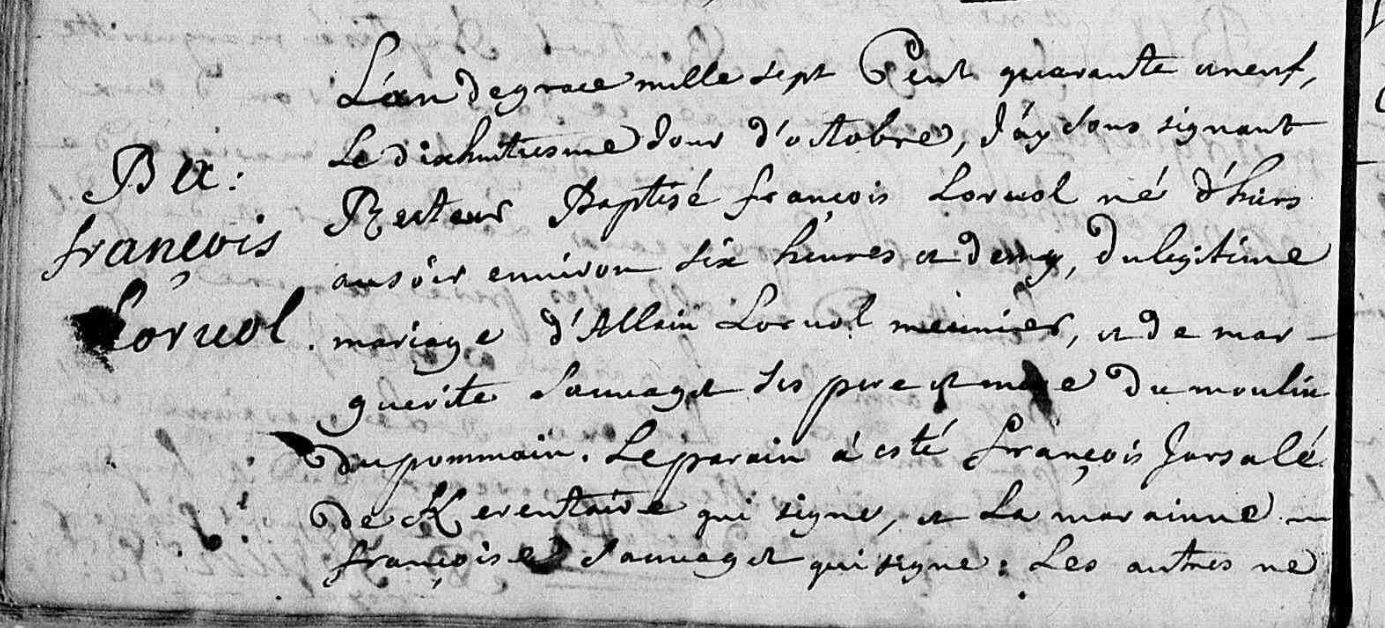 Bx:
françois
Loruol.
L'an de grace mille sept Cent quarante et neuf,
Le dixhuitiesme Jour d'octobre, J'ay sous signant
Recteur Baptisé françois Loruol né d'hiers
au soir environ six heures et demy, du legitime
mariage d'Allain Loruol meunier, et de mar-
guerite Sauvaget ses pere et mere du moulin
du pommain. Le parain á esté françois Jarsalé
de Kerentaire qui signe, et La marainne
françoise Sauvaget qui signe: Les autres ne